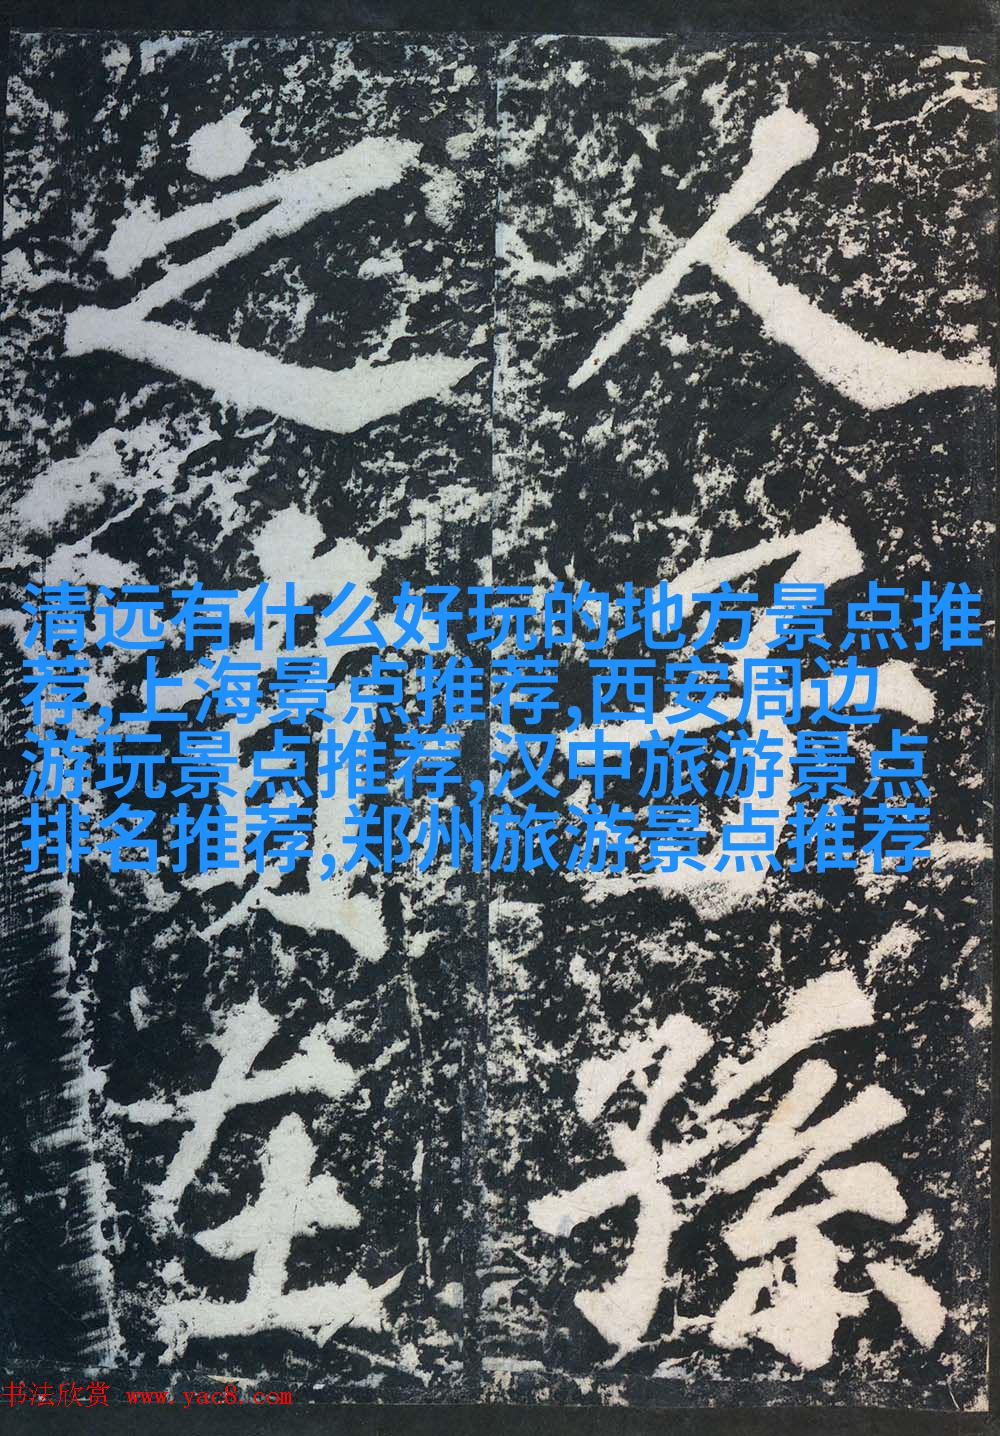 人
至
孫
之
在
清远有什么好玩的地方景点推
荐,上海景点推荐,西安周边
游玩景点推荐,汉中旅游景点
排名推荐,郑州旅游景点推荐
书法欣赏 www.yac8.com